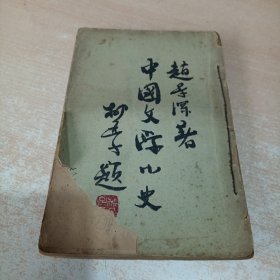 趙景深著
中國文學小史
柳亞子題